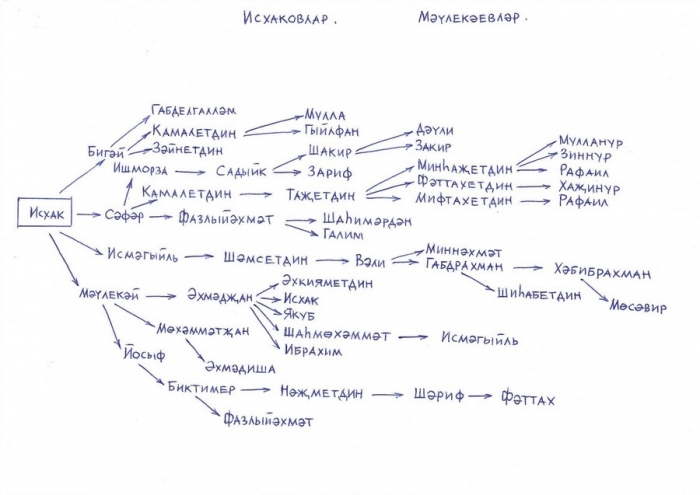 Исхаковлар. Мәүлекәевләр.
Габделгалләм
Мулла
Камалетдин
Гыйлфан
Дәүли
Закир
Бигәй
Зәйнетдин
Шакир
Муллануր
Зиннур
Ишморза
Садыйк
Зариф
Минһаҗетдин
Рафаил
Фәттахетдин
Хаҗинур
Камалетдин
Таҗетдин
Мифтахетдин
Рафаил
Исхак
Сәфәр
Фазлыйәхмәт
Шаһимәрдән
Галим
Исмәгыйль
Шәмсетдин
Вәли
Миннәхмәт
Габдрахман
Хәбибрахман
Шиһабетдин
Мөсәвир
Мәүлекәй
Әхмәдҗан
Әхкияметдин
Исхак
Якуб
Мөхәммәтҗан
Шаһмөхәммәт
Исмәгыйль
Ибрахим
Йосыф
Әхмәдиша
Биктимер
Нәҗметдин
Шәриф
Фәттах
Фазлыйәхмәт